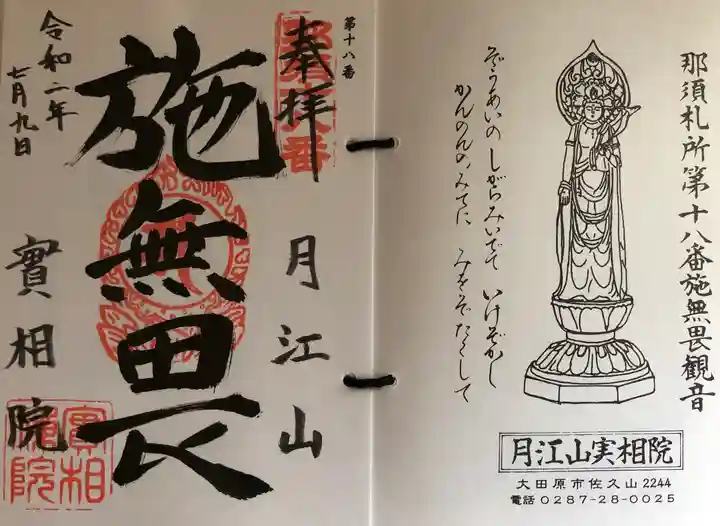 那須札所第十八番施無畏観音
ぞうあいの しがらみいでて いけぞかし
かんのんの みてに みをぞたくして
月江山実相院
大田原市佐久山2244
電話0287-28-0025
第十八番
奉拝
月江山
施無畏
實相院
令和二年
七月九日
實相
院